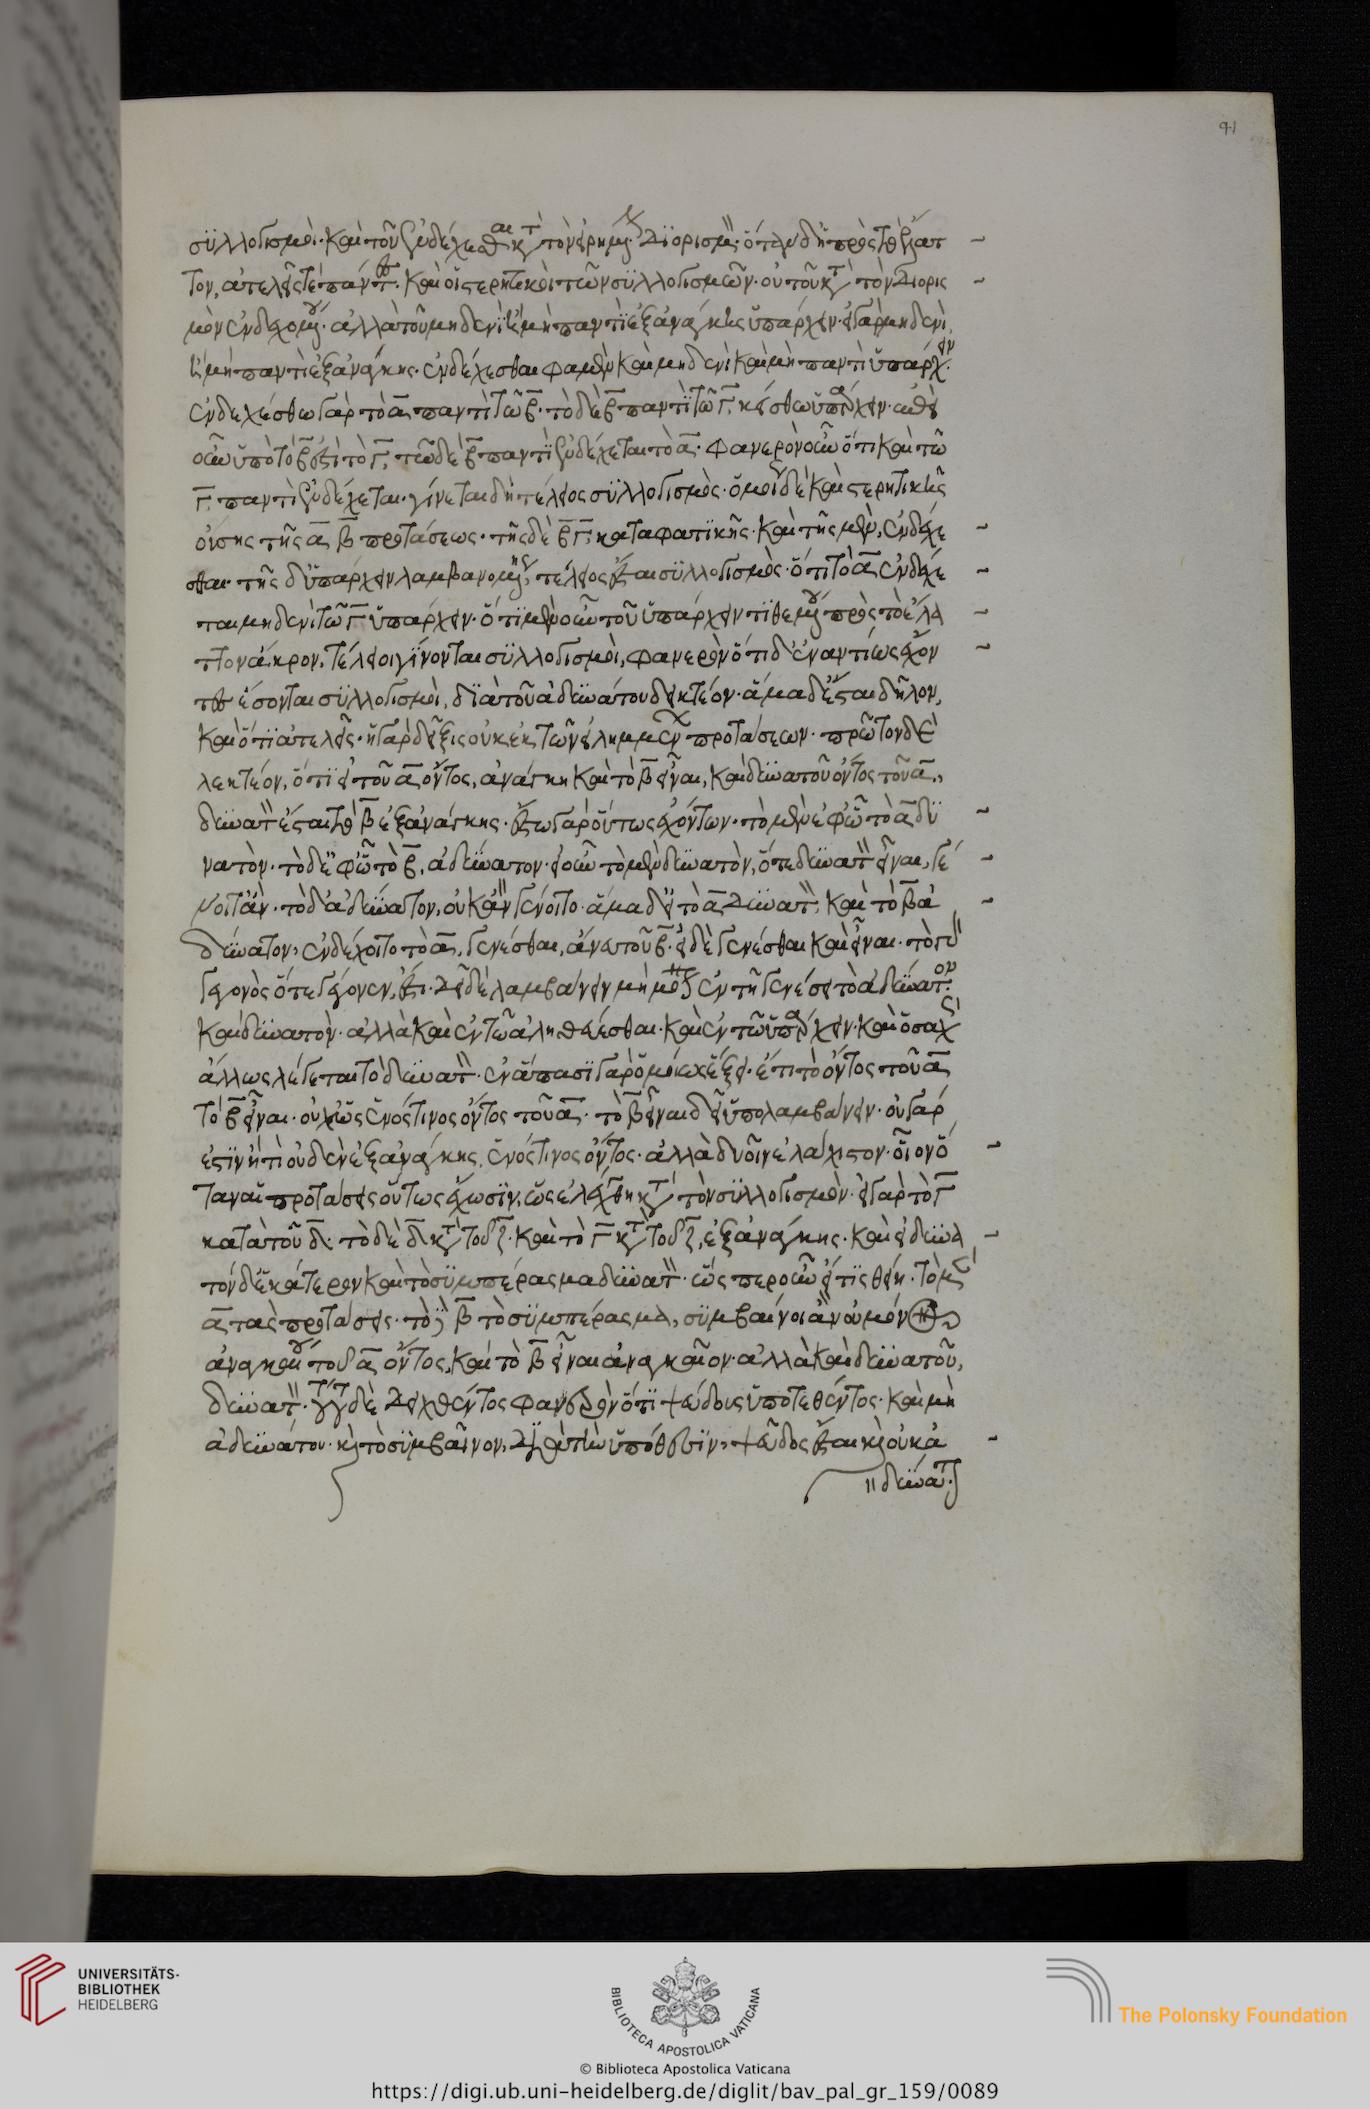 41
συλλογισμοί· καὶ τοῦ ἐνδέχεσθαι κατὰ τὸν εἰρημένον διορισμόν· ὅταν δὴ πρὸς τὸ ἔλατ
τον, ἀτελεῖς τε πάντες· καὶ οἱ στερητικοὶ τῶν συλλογισμῶν· οὐ τοῦ κατὰ τὸν διορισ
μὸν ἐνδεχομένου· ἀλλὰ τοῦ μηδενὶ ἢ μὴ παντὶ ἐξ ἀνάγκης ὑπάρχειν· εἰ γὰρ μηδενὶ
ἢ μὴ παντὶ ἐξ ἀνάγκης· ἐνδέχεσθαι φαμὲν καὶ μηδενὶ καὶ μὴ παντὶ ὑπάρχειν·
ἐνδεχέσθω γὰρ τὸ α παντὶ τῶ β· τὸ δὲ β παντὶ τῶ γ κείσθω ὑπάρχειν· ἐπεὶ
οὖν ὑπὸ τὸ β ἐστὶ τὸ γ, τῶ δὲ β παντὶ ἐνδέχεται τὸ α· φανερὸν οὖν ὅτι καὶ τῶ
γ παντὶ ἐνδέχεται· γίνεται δὴ τέλειος συλλογισμὸς· ὁμοίως δὲ καὶ στερητικῆς
οὔσης τῆς α β προτάσεως· τῆς δὲ β γ καταφατικῆς· καὶ τῆς μὲν, ἐνδέχε
σθαι· τῆς δ ὑπάρχειν λαμβανομένης, τέλειος ἔσται συλλογισμὸς· ὅτι τὸ α ἐνδέχε
ται μηδενὶ τῶ γ ὑπάρχειν· ὅτι μὲν οὖν τοῦ ὑπάρχειν τιθεμένου πρὸς τὸ ἔλα
ττον ἄκρον, τέλειοι γίνονται συλλογισμοὶ, φανερὸν ὅτι δ ἐναντίως ἔχον
τος ἔσονται συλλογισμοὶ, διὰ τοῦ ἀδυνάτου δεικτέον· ἅμα δ ἔσται δῆλον,
καὶ ὅτι ἀτελεῖς· ἡ γὰρ δεῖξις οὐκ ἐκ τῶν εἰλημμένων προτάσεων· πρῶτον δὲ
λεκτέον, ὅτι εἰ τοῦ α ὄντος, ἀνάγκη καὶ τὸ β εἶναι, καὶ δυνατοῦ ὄντος τοῦ α,
δυνατὸν ἔσται τὸ β ἐξ ἀνάγκης· ἔστω γὰρ οὕτως ἐχόντων· τὸ μὲν ἐφ ὧ τὸ α δυ
νατὸν· τὸ δ ἐφ ὧ τὸ β, ἀδύνατον· εἰ οὖν τὸ μὲν δυνατὸν, ὅτε δυνατὸν εἶναι, γέ
νοιτ ἂν· τὸ δ ἀδύνατον, οὐκ ἂν γένοιτο· ἅμα δ εἰ τὸ α δυνατὸν, καὶ τὸ β ἀ
δύνατον, ἐνδέχοιτο τὸ α, γενέσθαι, ἄνευ τοῦ β· εἰ δὲ γενέσθαι καὶ εἶναι· τὸ γὰρ
γεγονὸς ὅτε γέγονεν, ἔστι· δεῖ δὲ λαμβάνειν μὴ μόνον ἐν τῆ γενέσει τὸ ἀδύνατον·
καὶ δυνατὸν· ἀλλὰ καὶ ἐν τῶ ἀληθεύεσθαι· καὶ ἐν τῶ ὑπάρχειν· καὶ ὁσαχῶς
ἄλλως λέγεται τὸ δυνατὸν· ἐν ἅπασι γὰρ ὁμοίως ἕξει· ἔτι τὸ ὄντος τοῦ α
τὸ β εἶναι· οὐχ ὡς ἑνός τινος ὄντος τοῦ α· τὸ β εἶναι δεῖ ὑπολαμβάνειν· οὐ γάρ
ἐστιν ἔτι οὐδὲν ἐξ ἀνάγκης, ἑνός τινος ὄντος· ἀλλὰ δυοῖν ἐλάχιστον· οἷον ὅ
ταν αἱ προτάσεις οὕτως ἔχωσιν, ὡς ἐλέχθη κατὰ τὸν συλλογισμὸν· εἰ γὰρ τὸ γ
κατὰ τοῦ δ· τὸ δὲ δ κατὰ τοῦ ζ· καὶ τὸ γ κατὰ τοῦ ζ, ἐξ ἀνάγκης· καὶ εἰ δυνα
τὸν δ ἑκάτερον καὶ τὸ συμπέρασμα δυνατὸν· ὥσπερ οὖν εἴ τις θείη· τὸ μὲν
α τὰς προτάσεις· τὸ δὲ β τὸ συμπέρασμα, συμβαίνοι ἂν οὐ μόνον
ἀναγκαίου τοῦ α ὄντος, καὶ τὸ β εἶναι ἀναγκαῖον· ἀλλὰ καὶ δυνατοῦ,
δυνατὸν· τούτου δὲ δειχθέντος φανερὸν ὅτι ψεύδους ὑποτεθέντος· καὶ μὴ
ἀδυνάτου· καὶ τὸ συμβαῖνον, διὰ τὴν ὑπόθεσιν, ψεῦδος ἔσται καὶ οὐκ ἀ
δύνατον·
UNIVERSITÄTS-
BIBLIOTHEK
HEIDELBERG
BIBLIOTECA APOSTOLICA VATICANA
The Polonsky Foundation
© Biblioteca Apostolica Vaticana
https://digi.ub.uni-heidelberg.de/diglit/bav_pal_gr_159/0089